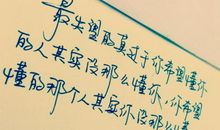 最失望的莫过于你希望懂你
的人其实没那么懂你，你希望
懂的那个人其实你没那么懂